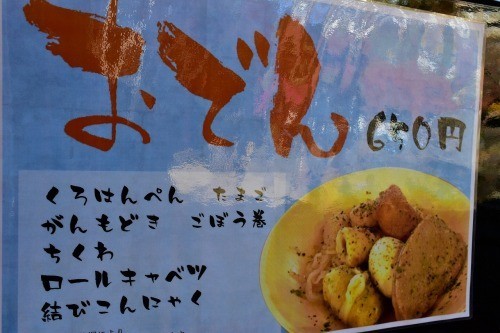 おでん
650円
くろはんぺん　たまご
がんもどき　ごぼう巻
ちくわ
ロールキャベツ
結びこんにゃく